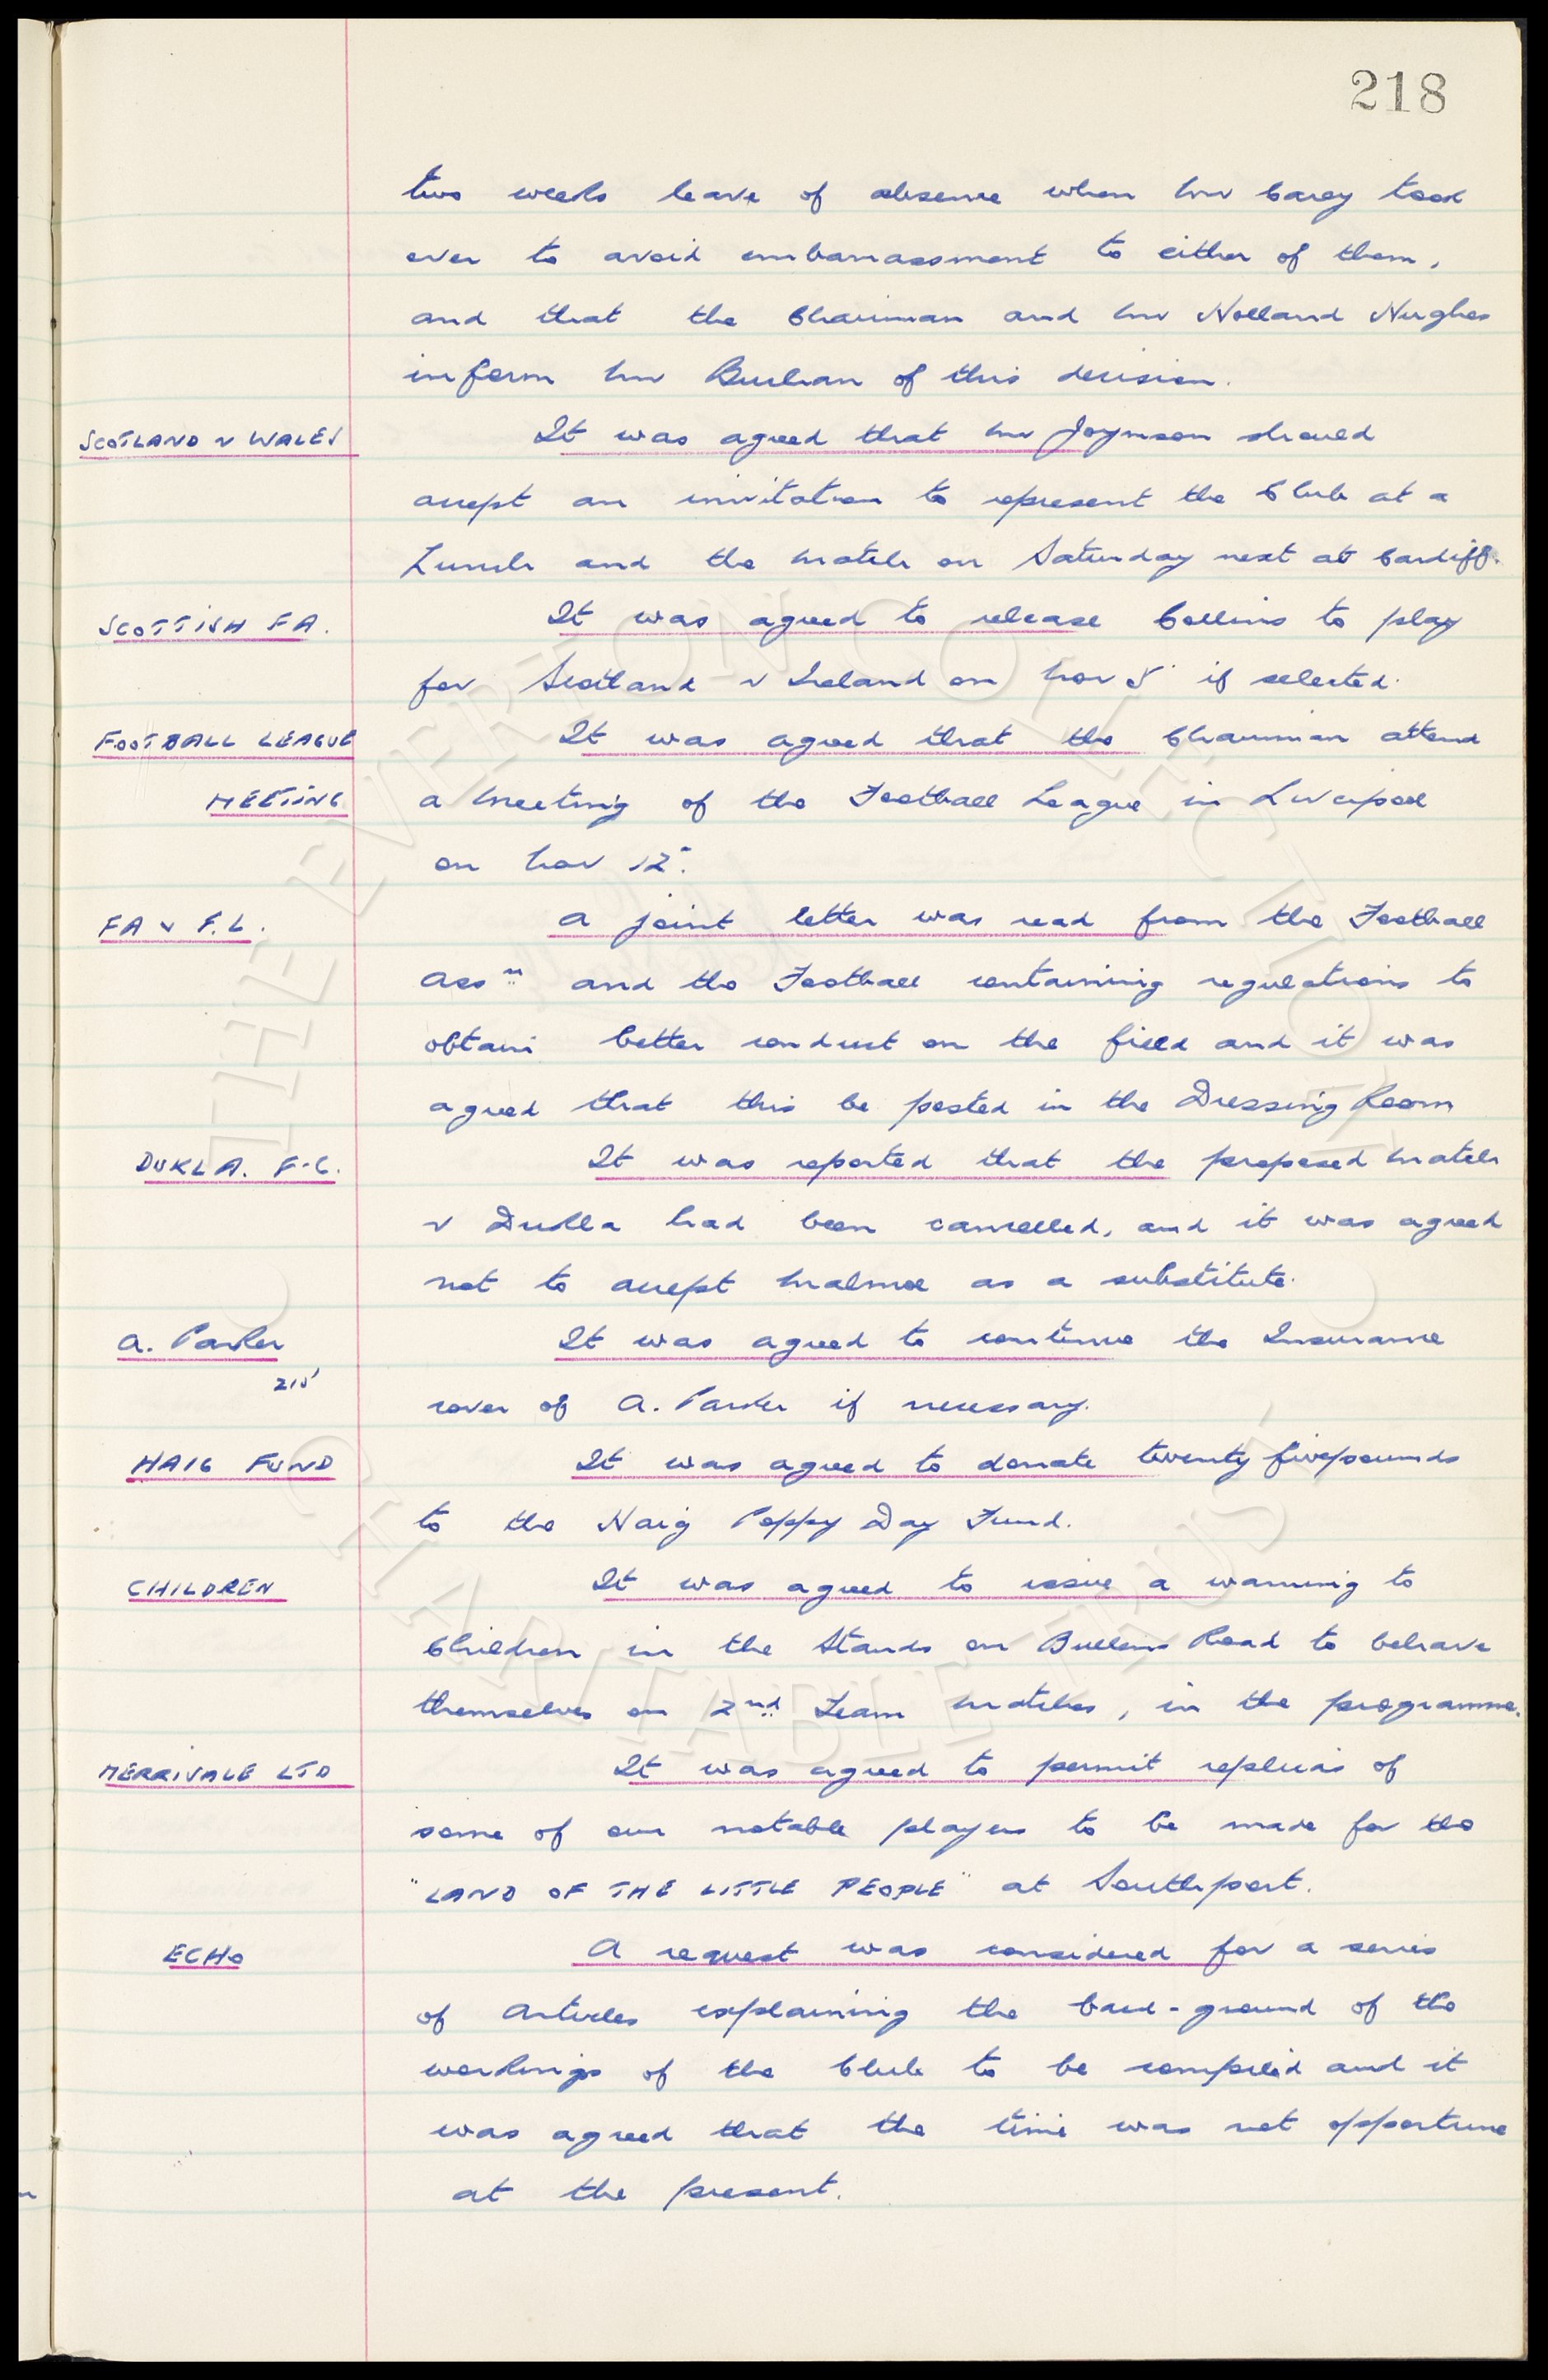 218
two weeks leave of absence when Mr Carey took
over to avoid embarrassment to either of them,
and that the Chairman and Mr Holland Hughes
inform Mr Buchan of this decision.
SCOTLAND v WALES It was agreed that Mr Joynson should
accept an invitation to represent the Club at a
Lunch and the Match on Saturday next at Cardiff.
SCOTTISH FA. It was agreed to release Collins to play
for Scotland v Ireland on Nov 5 if selected.
FOOTBALL LEAGUE It was agreed that the Chairman attend
MEETING a Meeting of the Football League in Liverpool
on Nov 12.
FA & F.L. A joint letter was read from the Football
Assn and the Football containing regulations to
obtain better conduct on the field and it was
agreed that this be posted in the Dressing Room
DUKLA. F.C. It was reported that the proposed Match
v Dukla had been cancelled, and it was agreed
not to accept Malmoe as a substitute.
A. Parker It was agreed to continue the Insurance
215
cover of A. Parker if necessary.
HAIG FUND It was agreed to donate twenty five pounds
to the Haig Poppy Day Fund.
CHILDREN It was agreed to issue a warning to
Children in the Stands on Bullens Road to behave
themselves on 2nd Team Matches, in the programme.
MERRIVALE LTD It was agreed to permit replicas of
some of our notable players to be made for the
"LAND OF THE LITTLE PEOPLE" at Southport.
ECHO A request was considered for a series
of Articles explaining the back-ground of the
workings of the Club to be compiled and it
was agreed that the time was not opportune
at the present.
THE EVERTON COLLECTION
CHARITABLE TRUST